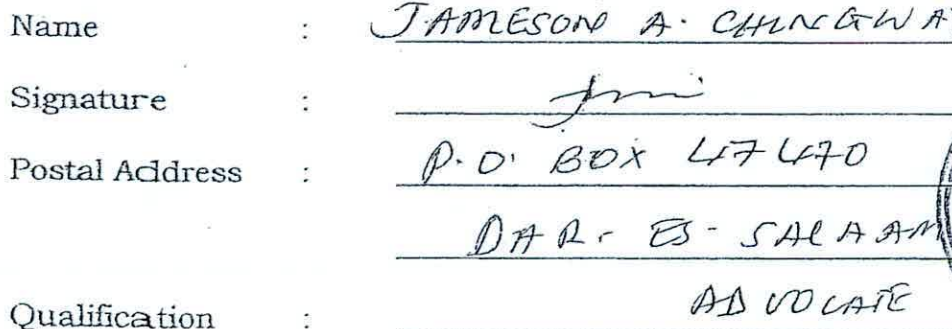 Name : JAMESON A. CHINGWA
Signature :
Postal Address : P.O. BOX 47470
DAR-ES-SALAAM
Qualification : ADVOCATE